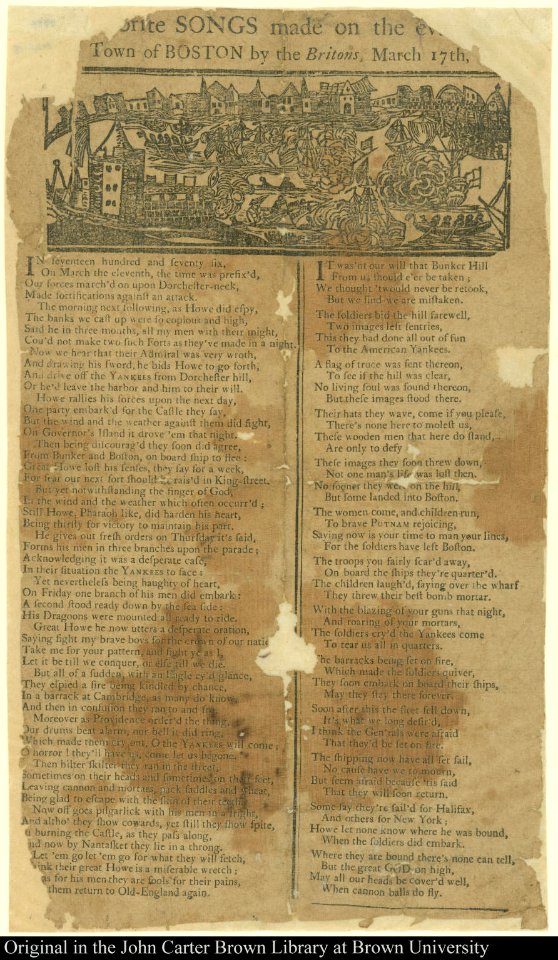 orite SONGS made on the ev
Town of BOSTON by the Britons, March 17th,
IN ſeventeen hundred and ſeventy ſix,
On March the eleventh, the time was prefix'd,
Our forces march'd on upon Dorcheſter-neck,
Made fortifications againſt an attack.
The morning next following, as Howe did eſpy,
The banks we caſt up were ſo copious and high,
Said he in three months, all my men with their might,
Cou'd not make two ſuch Forts as they've made in a night.
Now we hear that their Admiral was very wroth,
And drawing his ſword, he bids Howe to go forth,
And drive off the YANKEES from Dorcheſter hill,
Or he'd leave the harbor and him to their will.
Howe rallies his forces upon the next day,
One party embark'd for the Caſtle they ſay,
But the wind and the weather againſt them did fight,
On Governor's Iſland it drove 'em that night.
Then being diſcourag'd they ſoon did agree,
From Bunker and Boſton, on board ſhip to flee:
Great Howe loſt his ſenſes, they ſay for a week,
For fear our next fort ſhould be rais'd in King-ſtreet.
But yet notwithſtanding the finger of God,
In the wind and the weather which often occurr'd;
Still Howe, Pharaoh like, did harden his heart,
Being thirſty for victory to maintain his part.
He gives out freſh orders on Thurſday it's ſaid,
Forms his men in three branches upon the parade;
Acknowledging it was a deſperate caſe,
In their ſituation the YANKEES to face:
Yet nevertheleſs being haughty of heart,
On Friday one branch of his men did embark:
A ſecond ſtood ready down by the ſea ſide:
His Dragoons were mounted all ready to ride.
Great Howe he now utters a deſperate oration,
Saying fight my brave boys for the crown of our nation
Take me for your pattern, and fight ye as I,
Let it be till we conquer, or elſe till we die.
But all of a ſudden, with an Eagle ey'd glance,
They eſpied a fire being kindled by chance,
In a barrack at Cambridge, as many do know,
And then in confuſion they ran to and fro.
Moreover as Providence order'd the thing,
Our drums beat alarm, our bell it did ring,
Which made them cry out, O the YANKEES will come;
O horror! they'll have us, come let us begone.
Then hilter ſkilter they ran in the ſtreet,
Sometimes on their heads and ſometimes on their feet,
Leaving cannon and mortars, pack ſaddles and wheat,
Being glad to eſcape with the ſkin of their teeth.
Now off goes pilgarlick with his men in a fright,
And altho' they ſhow cowards, yet ſtill they ſhow ſpite,
In burning the Caſtle, as they paſs along,
And now by Nantaſket they lie in a throng.
Let 'em go let 'em go for what they will fetch,
ink their great Howe is a miſerable wretch;
as for his men they are fools for their pains,
them return to Old-England again.
IT was not our will that Bunker Hill
From us ſhould e'er be taken;
We thought 'twould never be retook,
But we find we are miſtaken.
The ſoldiers bid the hill farewell,
Two images left ſentries,
This they had done all out of fun
To the American Yankees.
A flag of truce was ſent thereon,
To ſee if the hill was clear,
No living ſoul was found thereon,
But theſe images ſtood there.
Their hats they wave, come if you pleaſe,
There's none here to moleſt us,
Theſe wooden men that here do ſtand,
Are only to defy
Theſe images they ſoon threw down,
Not one man's life was loſt then,
No ſooner they were on the hill,
But ſome landed into Boſton.
The women come, and children run,
To brave PUTNAM rejoicing,
Saving now is your time to man your lines,
For the ſoldiers have left Boſton.
The troops you fairly ſcar'd away,
On board the ſhips they're quarter'd.
The children laugh'd, ſaying over the wharf
They threw their beſt bomb mortar.
With the blazing of your guns that night,
And roaring of your mortars,
The ſoldiers cry'd the Yankees come
To tear us all in quarters.
The barracks being ſet on fire,
Which made the ſoldiers quiver,
They ſoon embark on board their ſhips,
May they ſtay there forever
Soon after this the fleet fell down,
It's what we long deſir'd,
I think the Gen'rals were afraid
That they'd be ſet on fire.
The ſhipping now have all ſet ſail,
No cauſe have we to mourn,
But ſeem afraid becauſe 'tis ſaid
That they will ſoon return.
Some ſay they're ſail'd for Halifax,
And others for New York;
Howe let none know where he was bound,
When the ſoldiers did embark.
Where they are bound there's none can tell,
But the great GOD on high,
May all our heads be cover'd well,
When cannon balls do fly.
Original in the John Carter Brown Library at Brown University